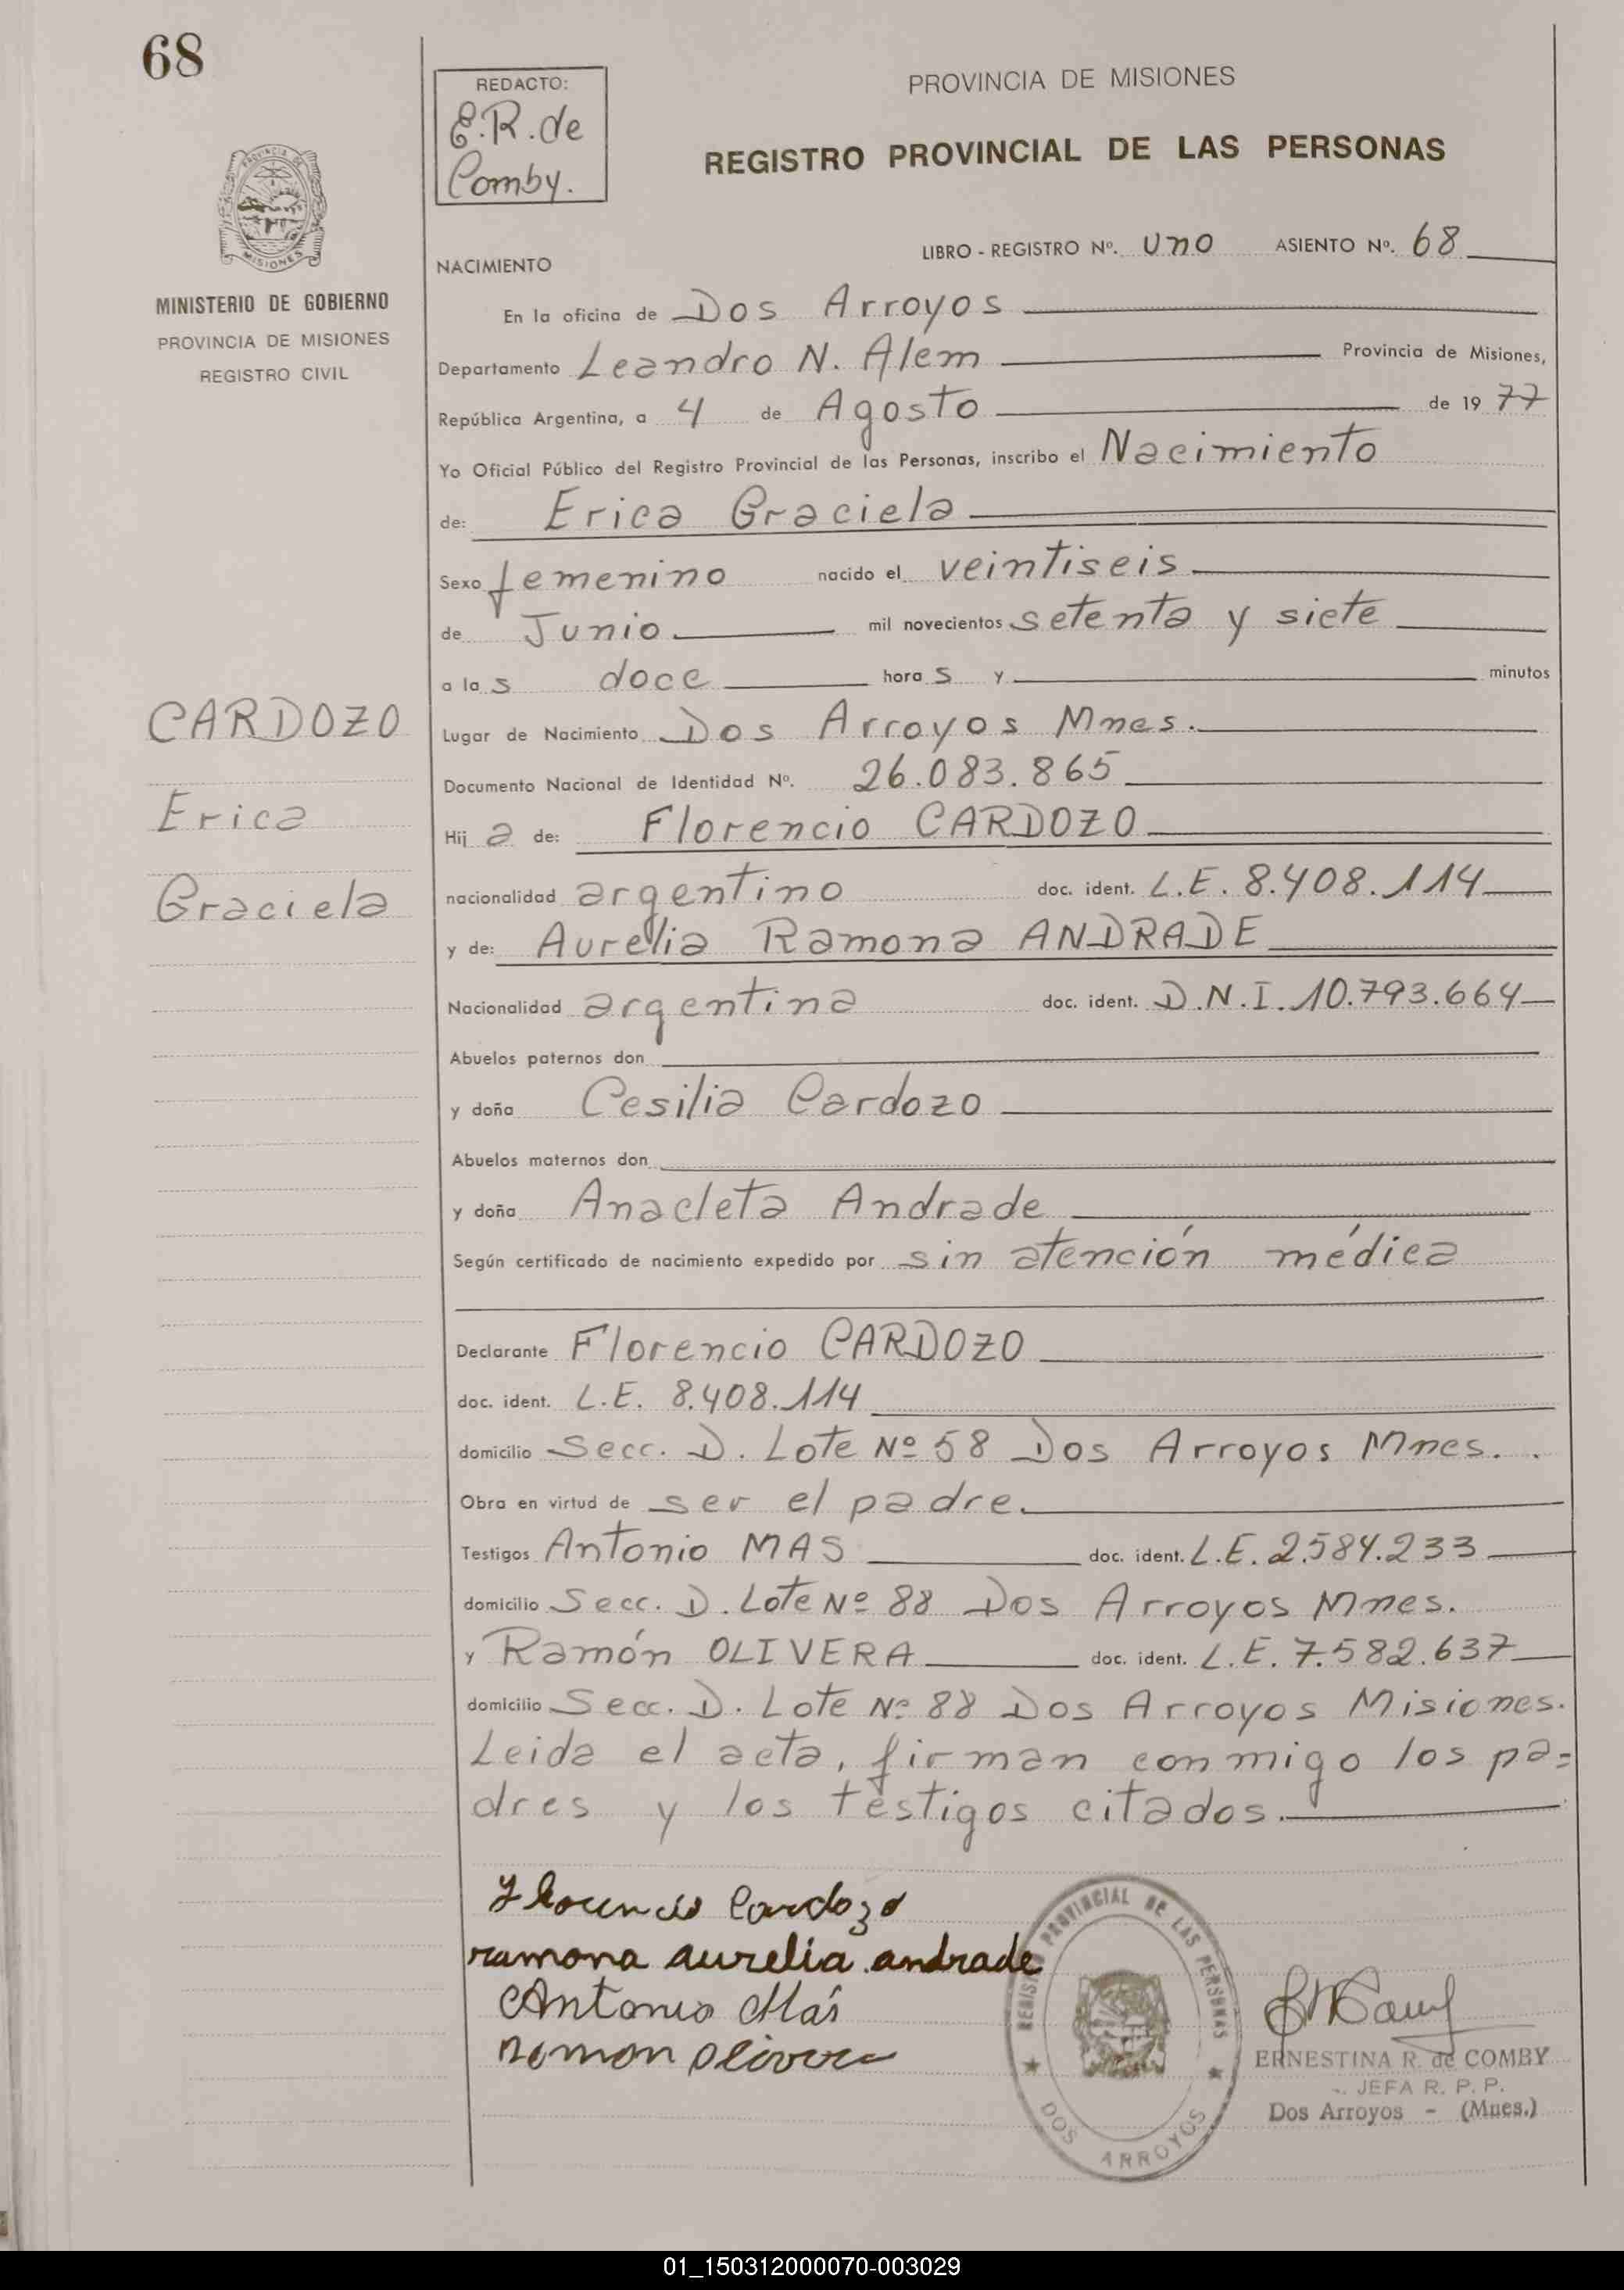 68
REDACTO:
E.R. de
Comby.
PROVINCIA DE MISIONES
REGISTRO PROVINCIAL DE LAS PERSONAS
PROVINCIA DE
MISIONES
MINISTERIO DE GOBIERNO
PROVINCIA DE MISIONES
REGISTRO CIVIL
LIBRO - REGISTRO Nº. Uno ASIENTO Nº. 68
NACIMIENTO
En la oficina de Dos Arroyos
Departamento Leandro N. Alem Provincia de Misiones,
República Argentina, a 4 de Agosto de 1977
Yo Oficial Público del Registro Provincial de las Personas, inscribo el Nacimiento
de: Erica Graciela
Sexo femenino nacido el veintiseis
de Junio mil novecientos setenta y siete
a las doce horas y minutos
Lugar de Nacimiento Dos Arroyos Mnes.
Documento Nacional de Identidad Nº. 26.083.865
Hija de: Florencio CARDOZO
nacionalidad argentino doc. ident. L.E. 8.408.114
y de: Aurelia Ramona ANDRADE
Nacionalidad argentina doc. ident. D.N.I. 10.793.664
Abuelos paternos don
y doña Cesilia Cardozo
Abuelos maternos don
y doña Anacleta Andrade
Según certificado de nacimiento expedido por sin atención médica
Declarante Florencio CARDOZO
doc. ident. L.E. 8.408.114
domicilio Secc. D. Lote Nº 58 Dos Arroyos Mnes.
Obra en virtud de ser el padre.
Testigos Antonio MAS doc. ident. L.E. 2.584.233
domicilio Secc. D. Lote Nº 88 Dos Arroyos Mnes.
y Ramón OLIVERA doc. ident. L.E. 7.582.637
domicilio Secc. D. Lote Nº 88 Dos Arroyos Misiones.
Leida el acta, firman conmigo los pa=
dres y los testigos citados.
CARDOZO
Erica
Graciela
Florencio Cardozo
ramona aurelia andrade
Antonio Más
ramon olivera
REGISTRO PROVINCIAL DE LAS PERSONAS
DOS ARROYOS
ERNESTINA R. de COMBY
JEFA R. P. P.
Dos Arroyos - (Mnes.)
01_150312000070-003029